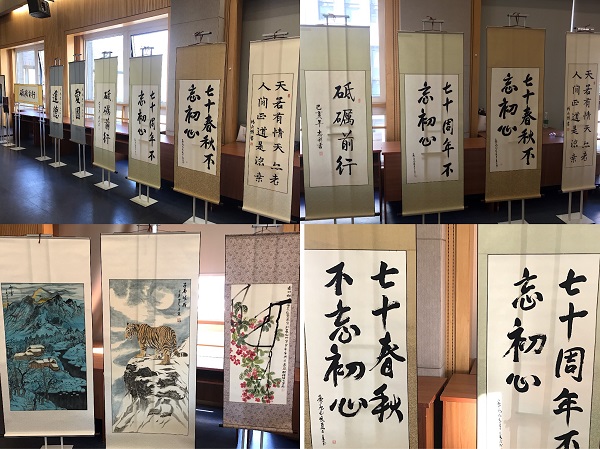 砥礪前行
道德
愛國
砥礪前行
七十周年不
忘初心
七十春秋不
忘初心
天若有情天亦老
人间正道是沧桑
砥礪前行
己亥年
七十周年不
忘初心
七十春秋不
忘初心
天若有情天亦老
人间正道是沧桑
七十春秋
不忘初心
七十周年不
忘初心